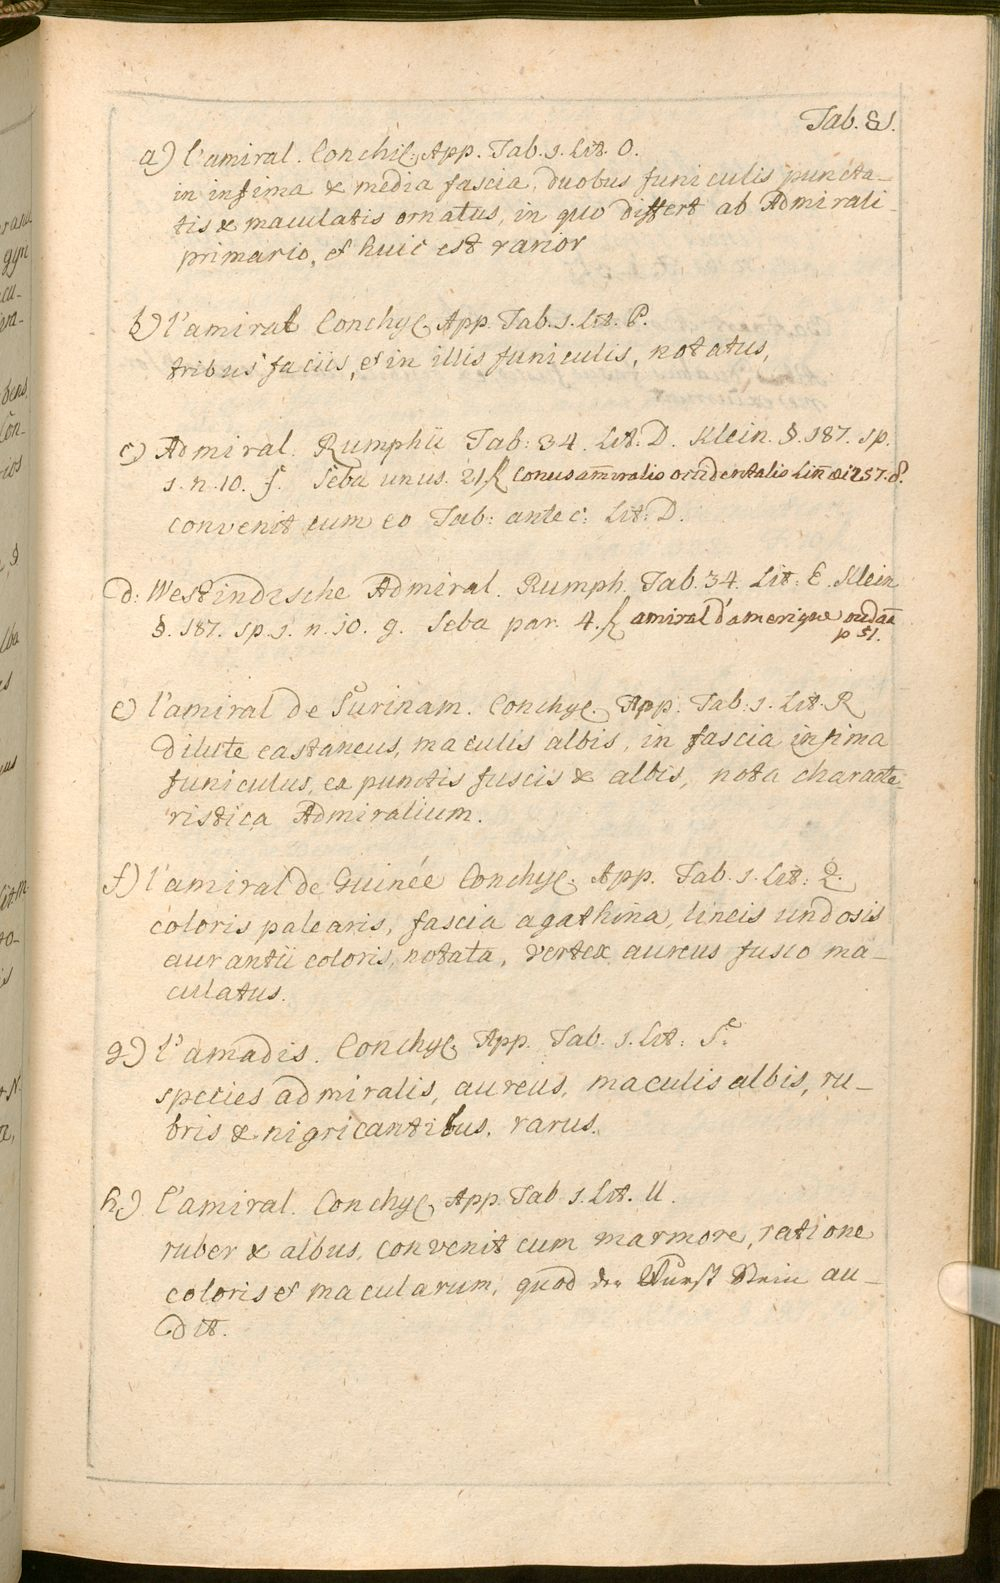 Tab. 81.
a) l'amiral. Conchil. App. Tab. 1. Lit. O.
in infima & media fascia, duobus funiculis puncta-
tis & maculatis ornatus, in quo differt ab Admirali
primario, & huic est rarior
b) l'amiral Conchyl. App. Tab. 1. Lit. P.
tribus faciis, & in illis funiculis, notatus,
c) Admiral. Rumphii Tab: 34. Lit. D. Klein. §. 187. sp.
1. n. 10. f. Seba unus. 21 Conus am̄iralis occidentalis Lin̄aei 257. δ.
convenit cum eo Tab: antec: Lit: D.
d: Westindische Admiral. Rumph. Tab. 34. Lit: E. Klein
§. 187. sp. 1. n. 10. g. Seba par. 4. amiral d'amerique
p 51.
e) l'amiral de Surinam. Conchyl. App. Tab: 1. Lit. R
dilute castaneus, maculis albis, in fascia infima
funiculus, ex punctis fuscis & albis, nota characte-
ristica Admiralium.
f) l'amiral de Guinée Conchyl. App. Tab. 1. Lit: Q.
coloris palearis, fascia agathina, lineis undosis
aurantii coloris, notata, vertex aureus fusco ma-
culatus.
g) l'amadis. Conchyl. App. Tab. 1. Lit: S.
species admiralis, aureus, maculis albis, ru-
bris & nigricantibus. rarus.
h) l'amiral. Conchyl. App. Tab 1. Lit. U.
ruber & albus, convenit cum marmore, ratione
coloris & macularum, quod der Wurst Stein au-
dit.